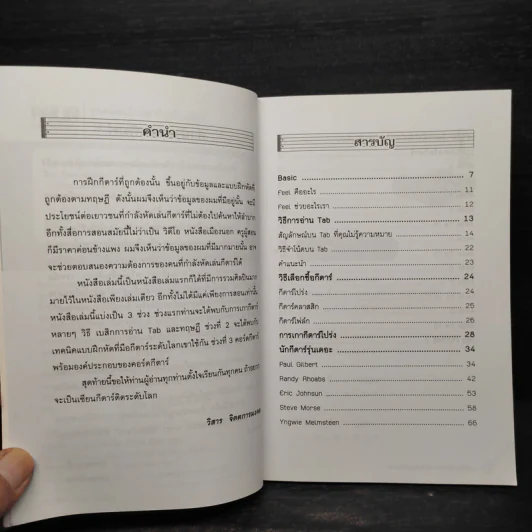 คำนำ
การฝึกกีตาร์ที่ถูกต้องนั้น ขึ้นอยู่กับข้อมูลและแบบฝึกหัดที่
ถูกต้องตามทฤษฎี ดังนั้นผมจึงเห็นว่าข้อมูลของผมที่มีอยู่นั้น จะมี
ประโยชน์ต่อเยาวชนที่กำลังหัดเล่นกีตาร์ที่ไม่ต้องไปค้นหาให้ลำบาก
อีกทั้งสื่อการสอนสมัยนี้ไม่ว่าเป็น วีดีโอ หนังสือเมืองนอก ครูผู้สอน
ก็มีราคาค่อนข้างแพง ผมจึงเห็นว่าข้อมูลของผมที่มีมากมายนั้น อาจ
จะช่วยตอบสนองความต้องการของคนที่กำลังหัดเล่นกีตาร์ได้
หนังสือเล่มนี้เป็นหนังสือเล่มแรกก็ได้ที่มีการรวมศิลปินมาก
มายไว้ในหนังสือเพียงเล่มเดียว อีกทั้งไม่ได้มีแค่เพียงการสอนเท่านั้น
หนังสือเล่มนี้แบ่งเป็น 3 ช่วง ช่วงแรกท่านจะได้พบกับการเกากีตาร์
หลายๆ วิธี เบสิกการอ่าน Tab และทฤษฎี ช่วงที่ 2 จะได้พบกับ
เทคนิคแบบฝึกหัดที่มือกีตาร์ระดับโลกเขาใช้กัน ช่วงที่ 3 คอร์ดกีตาร์
พร้อมองค์ประกอบของคอร์ดกีตาร์
สุดท้ายนี้ขอให้ท่านผู้อ่านทุกท่านตั้งใจเรียนกันทุกคน
จะเป็นเซียนกีตาร์ติดระดับโลก
วิสาร
สารบัญ
Basic 7
Feel คืออะไร 11
Feel ช่วยอะไรเรา 12
วิธีการอ่าน Tab 13
สัญลักษณ์บน Tab ที่คุณไม่รู้ความหมาย 14
วิธีจำโน้ตบน Tab 22
คำแนะนำ 23
วิธีเลือกซื้อกีตาร์ 24
กีตาร์โปร่ง 24
กีตาร์คลาสสิก 24
กีตาร์โฟล์ก 24
การเกากีตาร์โปร่ง 28
นักกีตาร์รุ่นเดอะ 34
Paul Gilbert 34
Randy Rhoabs 42
Eric Johnsun 53
Steve Morse 58
Yngwie Melmsteen 66